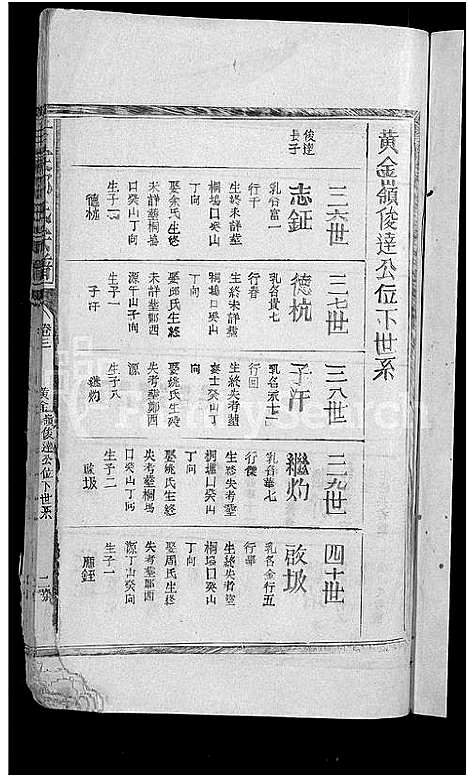 黄金嶺俊達公位下世系
三六世
志鉦
俊達
長子
乳名富一
行千
生終未詳塟
桐塢口癸山
丁向
娶余氏生終
未詳塟桐塢
口癸山丁向
生子一
德杭
三七世
德杭
乳名貴七
行春
生終未詳塟
桐塢口癸山
丁向
娶邱氏生終
未詳塟鄭西
源午山子向
生子一
子汗
三八世
子汗
乳名永十二
行回
生終失考塟
士癸山丁向
娶姚氏生殁
失考塟鄭西
源
生子八
繼灼
三九世
繼灼
乳名華七
行傑
生終失考塟
桐塢口癸山
丁向
娶姚氏生終
失考塟桐塢
口癸山丁向
生子二
啟圾
四十世
啟圾
乳名金行五
行華
生終失考塟
桐塢口癸山
丁向
娶周氏生終
失考塟鄭西
源丁山癸向
生子一
卷三
黄金嶺俊達公位下世系